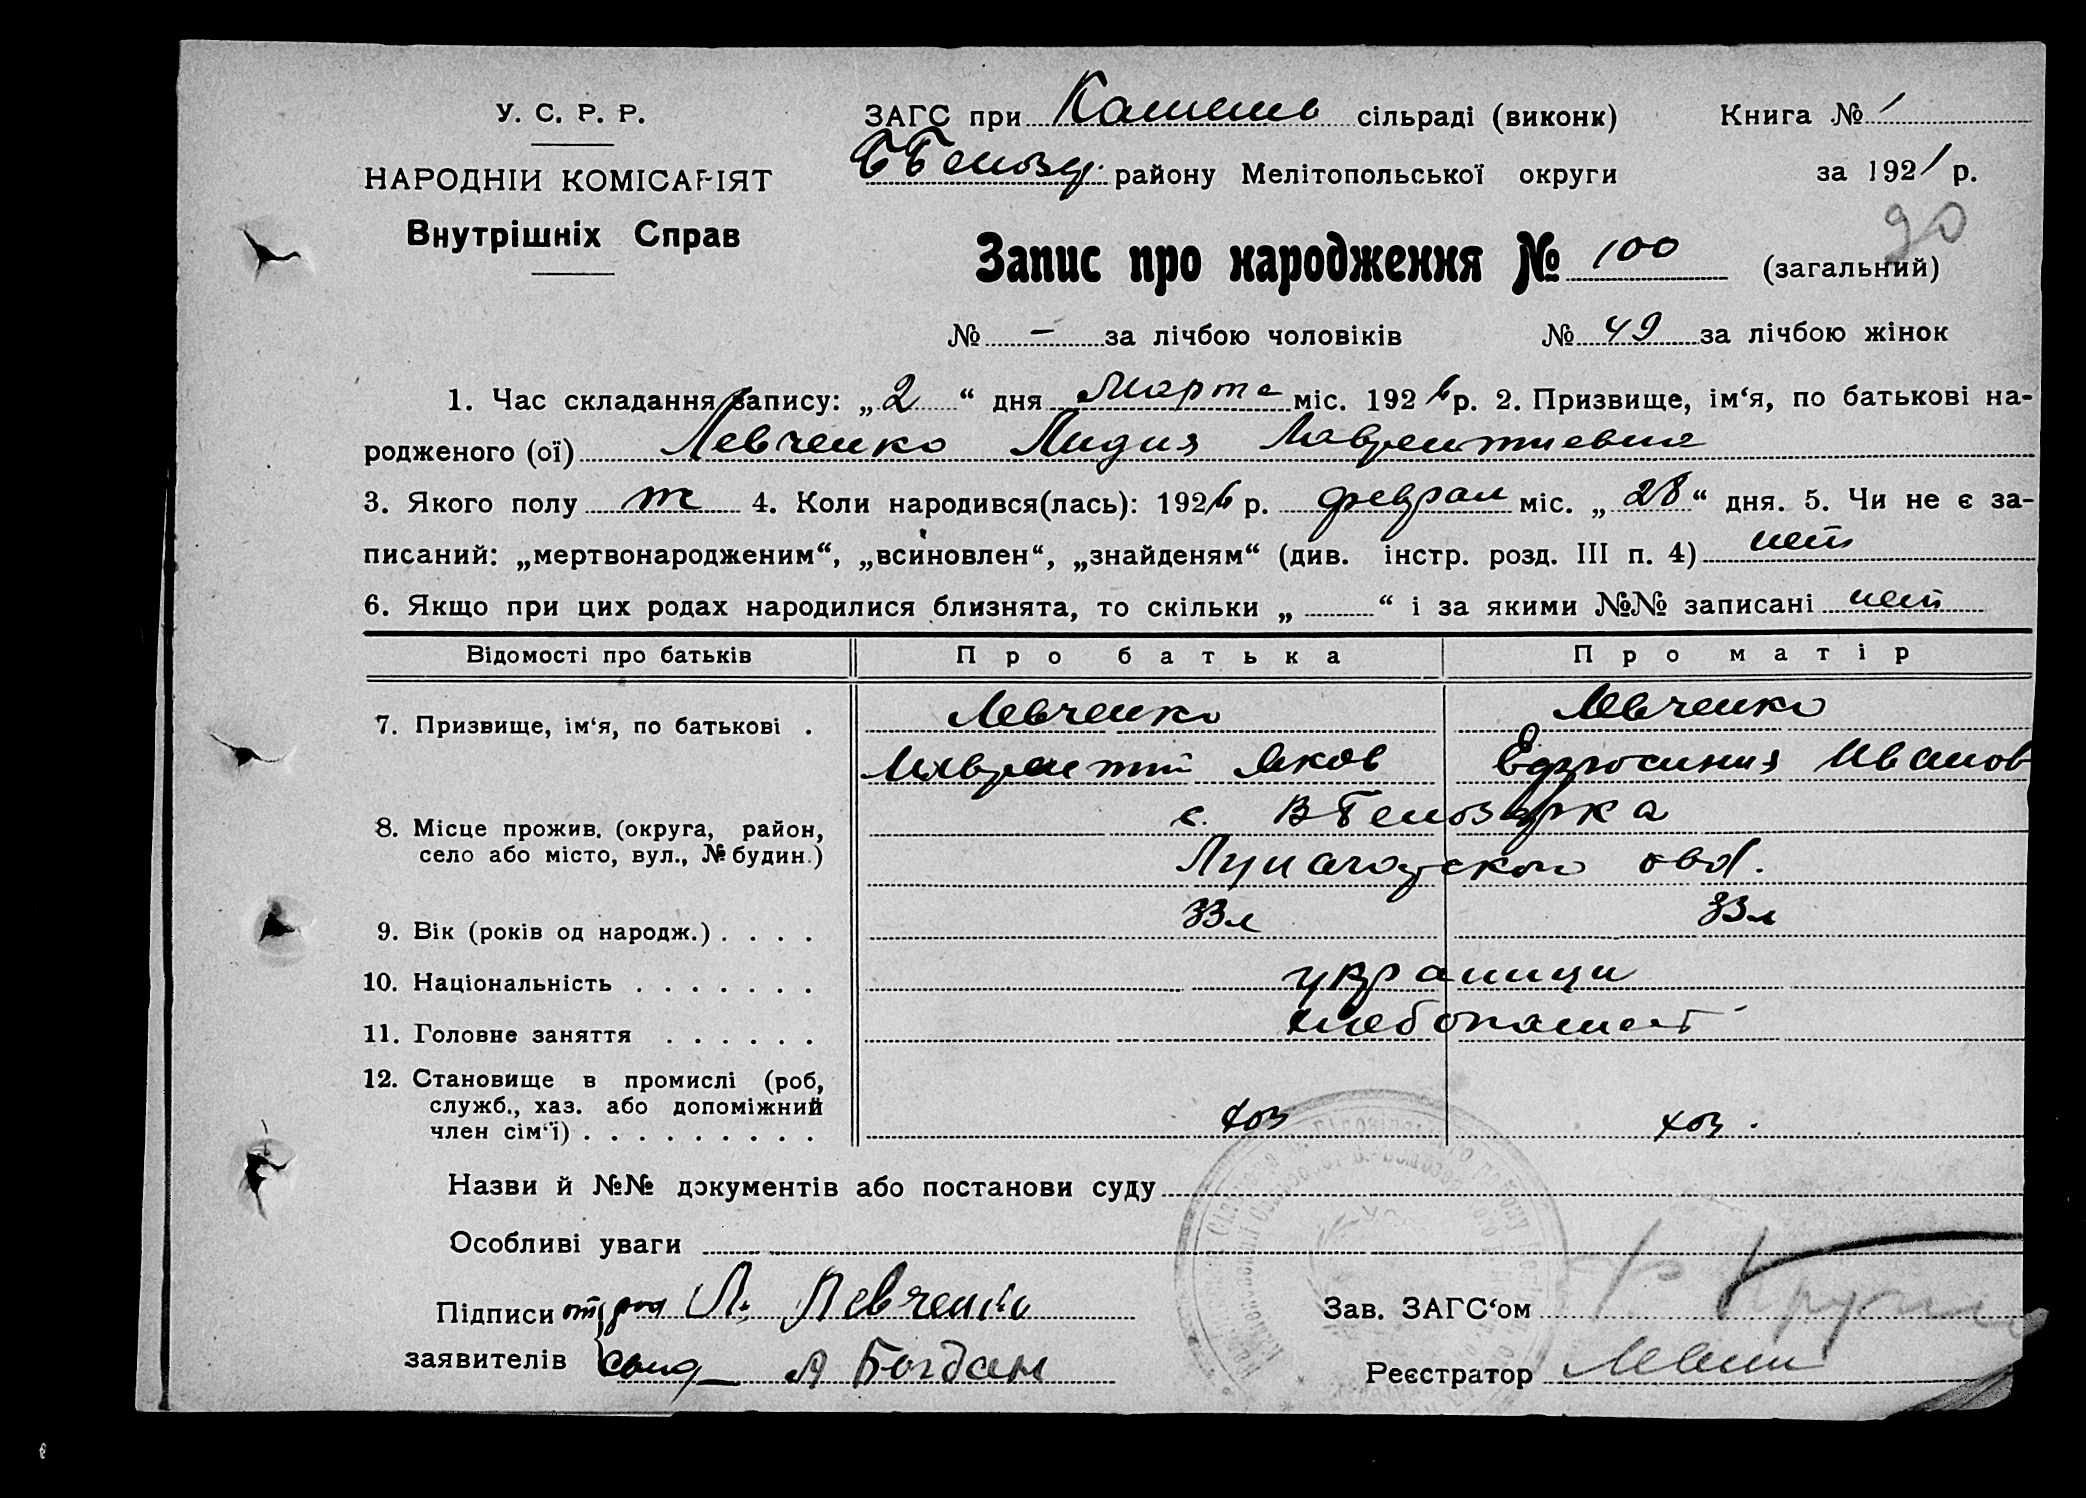 У. С. Р. Р.
НАРОДНІЙ КОМІСАРІЯТ
Внутрішніх Справ
ЗАГС при сільраді (виконк) Книга № 1
району Мелітопольської округи за 192 р.
90
Запис про народження № 100 (загальний)
№ - за лічбою чоловіків № 49 за лічбою жінок
1. Час складання запису: „2“ дня Марта міс. 1926 р. 2. Призвище, ім‘я, по батькові на-
родженого (ої) Левченко Лидия Лаврентиевна
3. Якого полу ж 4. Коли народився(лась): 1926 р. феврал міс. „28“ дня. 5. Чи не є за-
писаний: „мертвонародженим“, „всиновлен“, „знайденям“ (див. інстр. розд. III п. 4) нет
6. Якщо при цих родах народилися близнята, то скільки „ “ і за якими №№ записані нет
Відомості про батьків Про батька Про матір
7. Призвище, ім‘я, по батькові . Левченко Левченко
Лаврентий Яков Ефросиния Иванов
8. Місце прожив. (округа, район, с. ВБелозерка
село або місто, вул., № будин.)
9. Вік (років од народж.) . . . . 33л 33л
10. Національність . . . . . . . украинци
11. Головне заняття . . . . . . хлебопашест
12. Становище в промислі (роб,
служб., хаз. або допоміжний
член сім‘ї) . . . . . . . . . хоз хоз.
Назви й №№ документів або постанови суду
Особливі уваги
Підписи Л. Левченко Зав. ЗАГС‘ом
заявителів А Богдан Реєстратор